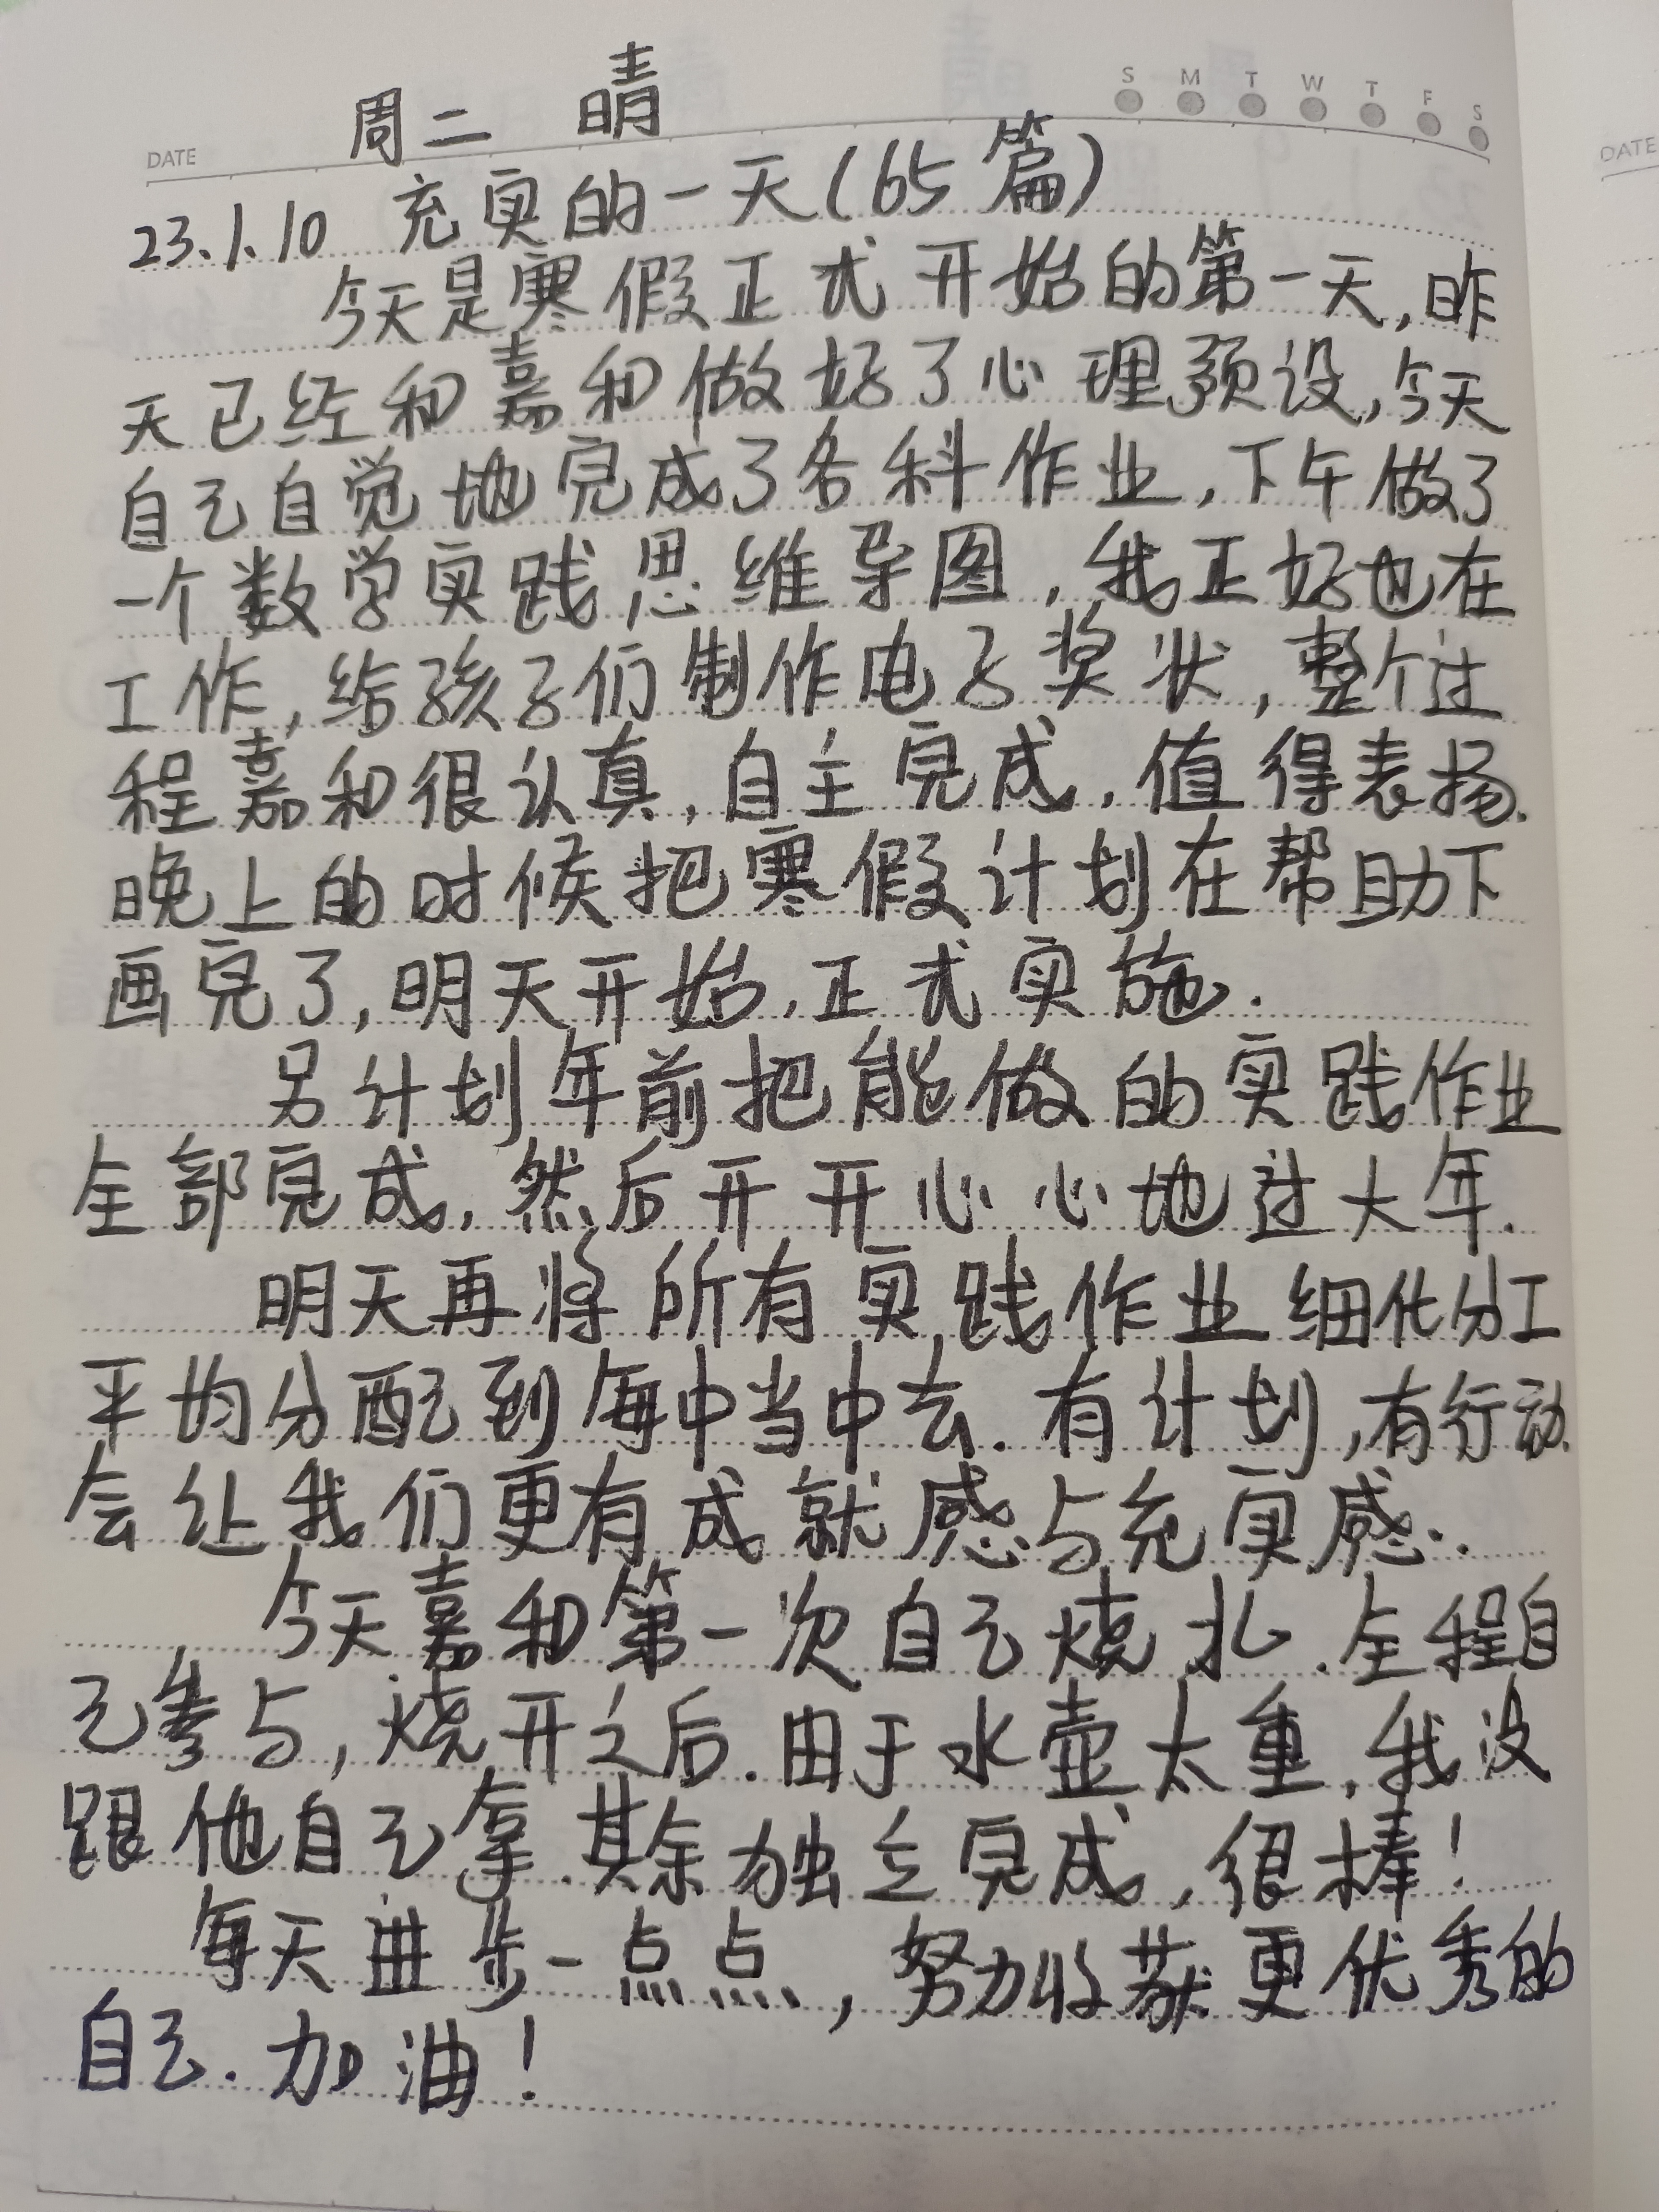 周二 晴
S M T W T F S
DATE
DATE
23.1.10 充实的一天(65篇)
今天是寒假正式开始的第一天,昨
天已经和嘉和做好了心理预设,今天
自己自觉地完成了各科作业,下午做了
一个数学实践思维导图,我正好也在
工作,给孩子们制作电子奖状,整个过
程嘉和很认真,自主完成,值得表扬.
晚上的时候把寒假计划在帮助下
画完了,明天开始,正式实施.
另计划年前把能做的实践作业
全部完成,然后开开心心地过大年.
明天再将所有实践作业细化分工
平均分配到每中当中去.有计划,有行动.
会让我们更有成就感与充实感..
今天嘉和第一次自己烧水.全程自
己参与,烧开之后.由于水壶太重,我没
跟他自己拿.其余独立完成,很棒!
每天进步一点点,努力收获更优秀的
自己.加油!